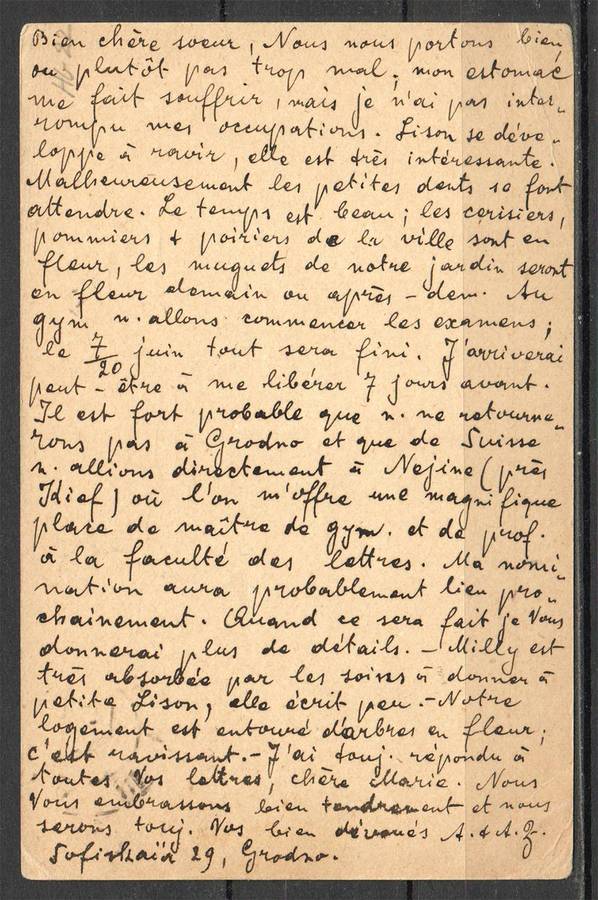 Bien chère soeur, Nous nous portons bien,
ou plutôt pas trop mal; mon estomac
me fait souffrir, mais je n'ai pas inter-
rompu mes occupations. Lison se déve-
loppe à ravir, elle est très intéressante.
Malheureusement les petites dents se font
attendre. Le temps est beau; les cerisiers,
pommiers & poiriers de la ville sont en
fleur, les muguets de notre jardin seront
en fleur demain ou après-dem. Au
gym n. allons commencer les examens;
le 7/20 juin tout sera fini. J'arriverai
peut-être à me libérer 7 jours avant.
Il est fort probable que n. ne retourne-
rons pas à Grodno et que de Suisse
n. allions directement à Nejine (près
Kief) où l'on m'offre une magnifique
place de maître de gym. et de prof.
à la faculté des lettres. Ma nomi-
nation aura probablement lieu pro-
chainement. Quand ce sera fait je Vous
donnerai plus de détails. - Milly est
très absorbée par les soins à donner à
petite Lison, elle écrit peu. - Notre
logement est entouré d'arbres en fleur;
c'est ravissant. - J'ai touj. répondu à
toutes Vos lettres, chère Marie. Nous
Vous embrassons bien tendrement et nous
serons touj. Vos bien dévoués A. & A. Z.
Sofiskaïa 29, Grodno.